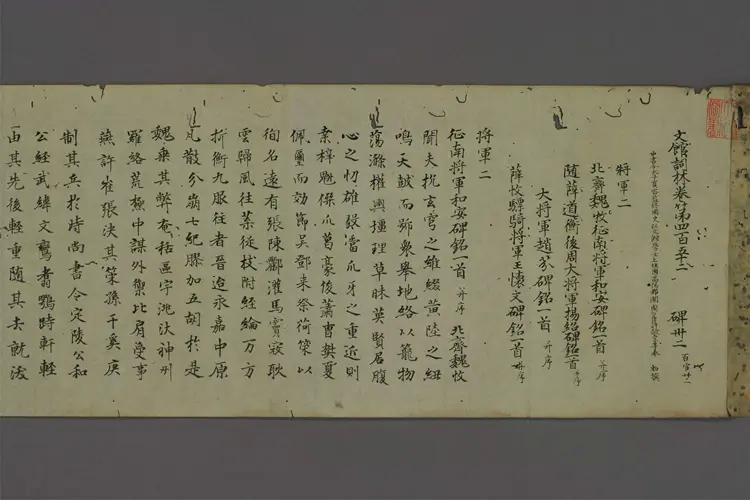 文館詞林卷第四百五十二 碑卅二 百官廿二
中書令太子賓客監修國史弘文館學士上柱國高陽郡開國公臣許敬宗等奉 勅撰
將軍二
北齊魏收征南將軍和安碑銘一首 并序
隨薛道衡後周大將軍楊紹碑銘一首 并序
大將軍趙芬碑銘一首 并序
薛收驃騎將軍王懷文碑銘一首 并序
將軍二
征南將軍和安碑銘一首 并序 北齊魏收
聞夫抗玄穹之維綴黃陸之紐
鳴天鼓而節衆舉地絡以籠物
蕩滌權輿壃理草昧英賢居腹
心之切雄張潘爪牙之重近則
索梓魁傑爪葛豪俊蕭曹樊夏
佩璽而効節吳鄧來祭荷策以
徇名遠有張陳酈灌馬竇寇耿
雲歸風往葉從枝附經綸万方
折衝九服往者晉迨永嘉中原
瓦散分崩七紀膠加五胡於是
魏乘其弊奄括區宇洮汰神州
羅絡荒極中謀外禦比肩受事
燕許崔張決其策孫千奚庾
制其兵於時尚書令定陵公和
公經武緯文鸞翥鶚時軒輊
由其先後輕重隨其去就洨